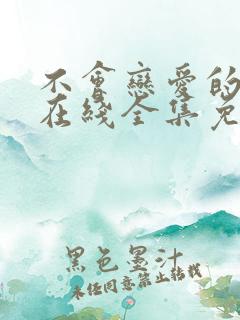 不會戀愛的
在綫全集免
黑色墨汁
未经同意禁止转载